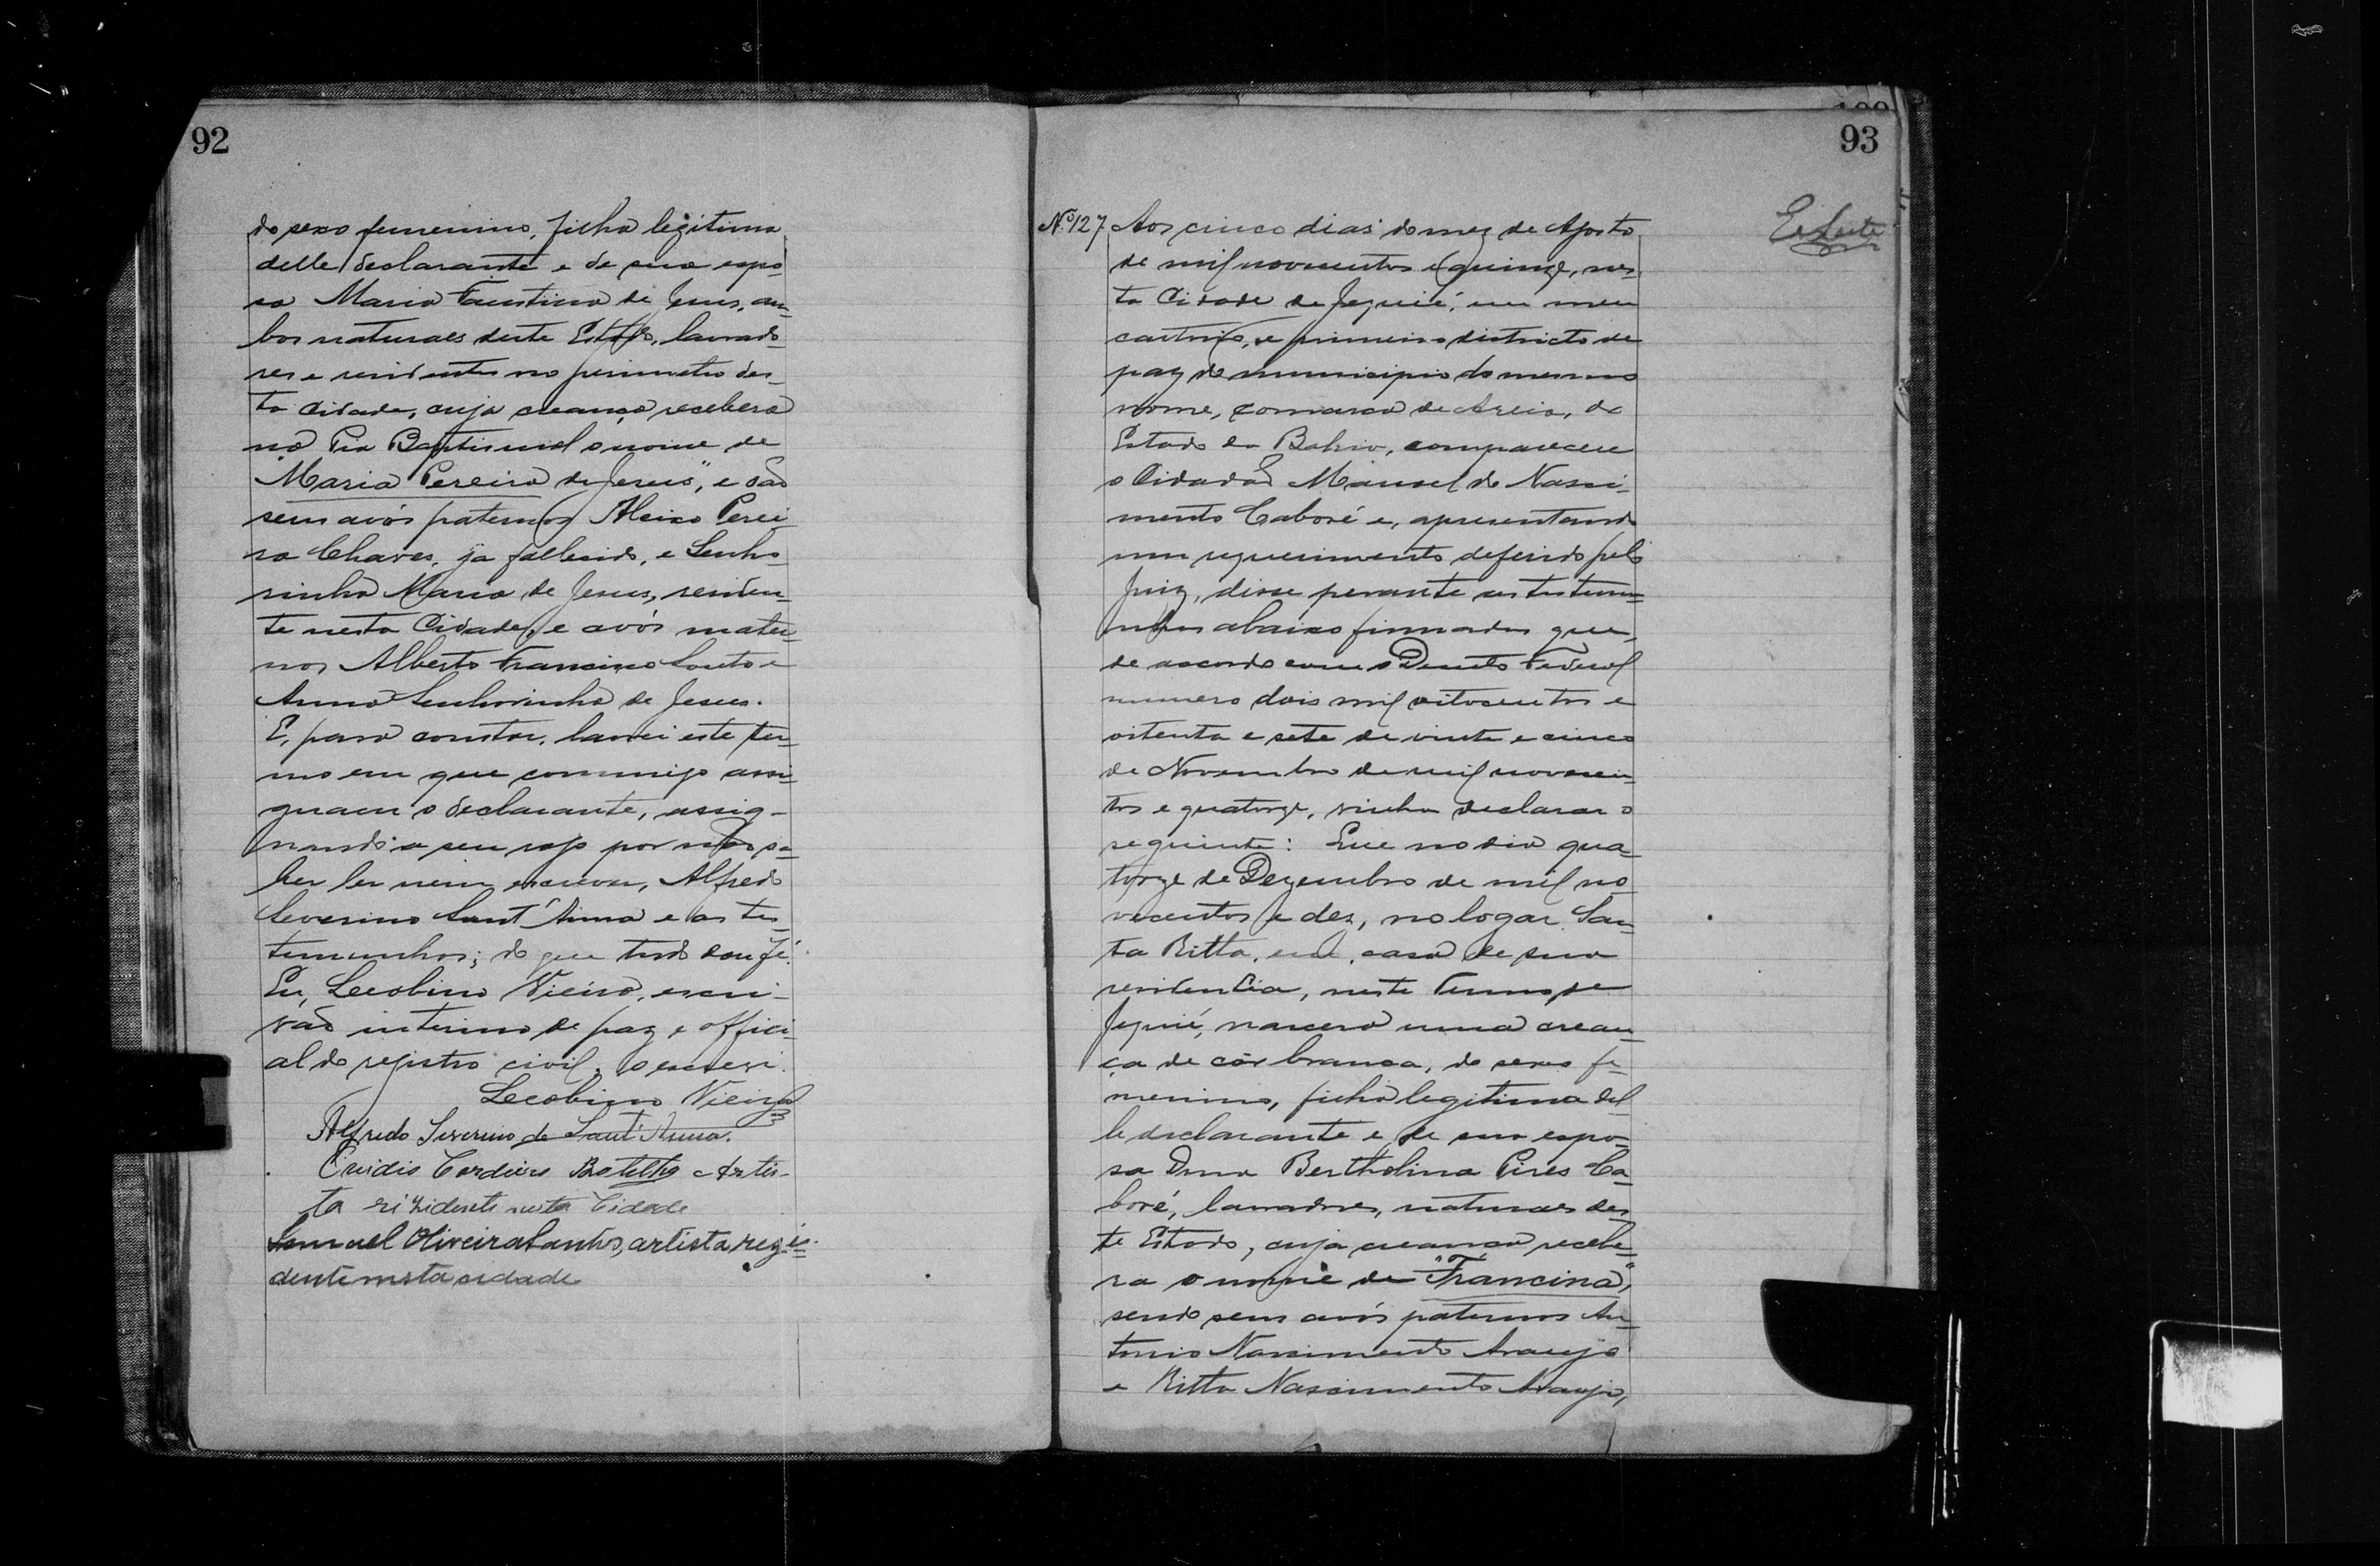 92
do sexo femenino, filha legitima
delle declarante e de sua espo-
sa Maria Faustina de Jesus, am-
bos naturaes deste Estado, lavrado-
res e residentes no perimetro des-
ta Cidade, cuja creança receberá
na Pia Baptismal o nome de
"Maria Pereira de Jesus", e são
seus avós paternos Aleixo Perei-
ra Chaves, já fallecido, e Senho-
rinha Maria de Jesus, residen-
te nesta Cidade, e avós mater-
nos Alberto Francisco Souto e
Anna Senhorinha de Jesus.
E, para constar, lavrei este ter-
mo em que commigo assi-
gnam o declarante, assig-
nando a seu rogo por não sa-
ber ler nem escrever, Alfredo
Severino Sant'Anna e as tes-
temunhas; do que tudo dou fé.
Eu, Leobino Vieira, escri-
vão interino de paz e offici-
al do registro civil, o escrevi.
Leobino Vieira
Alfredo Severino de Sant'Anna.
Ovidio Cordeiro Botelho Artis-
ta rizidente nesta Cidade
Samuel Oliveira Santos, artista rezi-
dente nesta cidade
93
Nº 127 Aos cinco dias do mez de Agosto
de mil novecentos e quinze, nes-
ta Cidade de Jequié, em meu
cartorio, e primeiro districto de
paz do municipio do mesmo
nome, comarca de Areia, do
Estado da Bahia, compareceu
o Cidadão Manoel do Nasci-
mento Caboré e, apresentando
um requerimento deferido pelo
Juiz, disse perante as testemu-
nhas abaixo firmadas que,
de accordo com o Decreto Federal
numero dois mil oitocentos e
oitenta e sete de vinte e cinco
de Novembro de mil novecen-
tos e quatorze, vinha declarar o
seguinte: Que no dia qua-
torze de Dezembro de mil no-
vecentos e dez, no logar San-
ta Ritta, em casa de sua
residencia, neste Termo de
Jequié, nascera uma crean-
ça de côr branca, do sexo fe-
menino, filha legitima del-
le declarante e de sua espo-
sa Dona Bertholina Pires Ca-
boré, lavradores, naturaes des-
te Estado, cuja creança recebe-
ra o nome de "Francina",
sendo seus avós paternos An-
tonio Nascimento Araujo
e Ritta Nascimento Araujo,